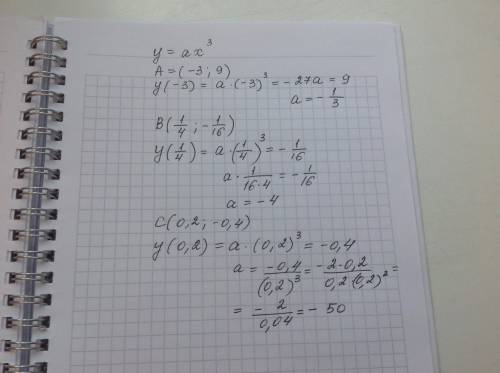 y = ax³
A = (-3; 9)
y(-3) = a·(-3)³ = -27a = 9
a = -1/3
B(1/4; -1/16)
y(1/4) = a·(1/4)³ = -1/16
a·1/(16·4) = -1/16
a = -4
C(0,2; -0,4)
y(0,2) = a·(0,2)³ = -0,4
a = -0,4/(0,2)³ = -2·0,2/0,2·(0,2)² =
= -2/0,04 = -50